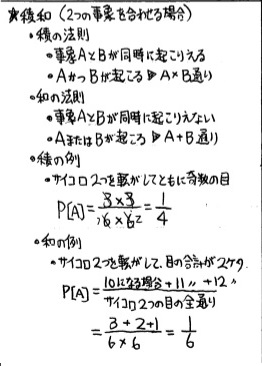 ★積和(2つの事象を合わせる場合)
・積の法則
・事象AとBが同時に起こりえる
・AかつBが起こる▷A×B通り
・和の法則
・事象AとBが同時に起こりえない
・AまたはBが起こる▷A+B通り
・積の例
・サイコロ2つを転がしてともに奇数の目
P[A]=3×3/6×6=1/4
・和の例
・サイコロ2つを転がして、目の合計が2ケタ
P[A]=10になる場合+11〃+12〃/サイコロ2つの目の全通り
=3+2+1/6×6=1/6